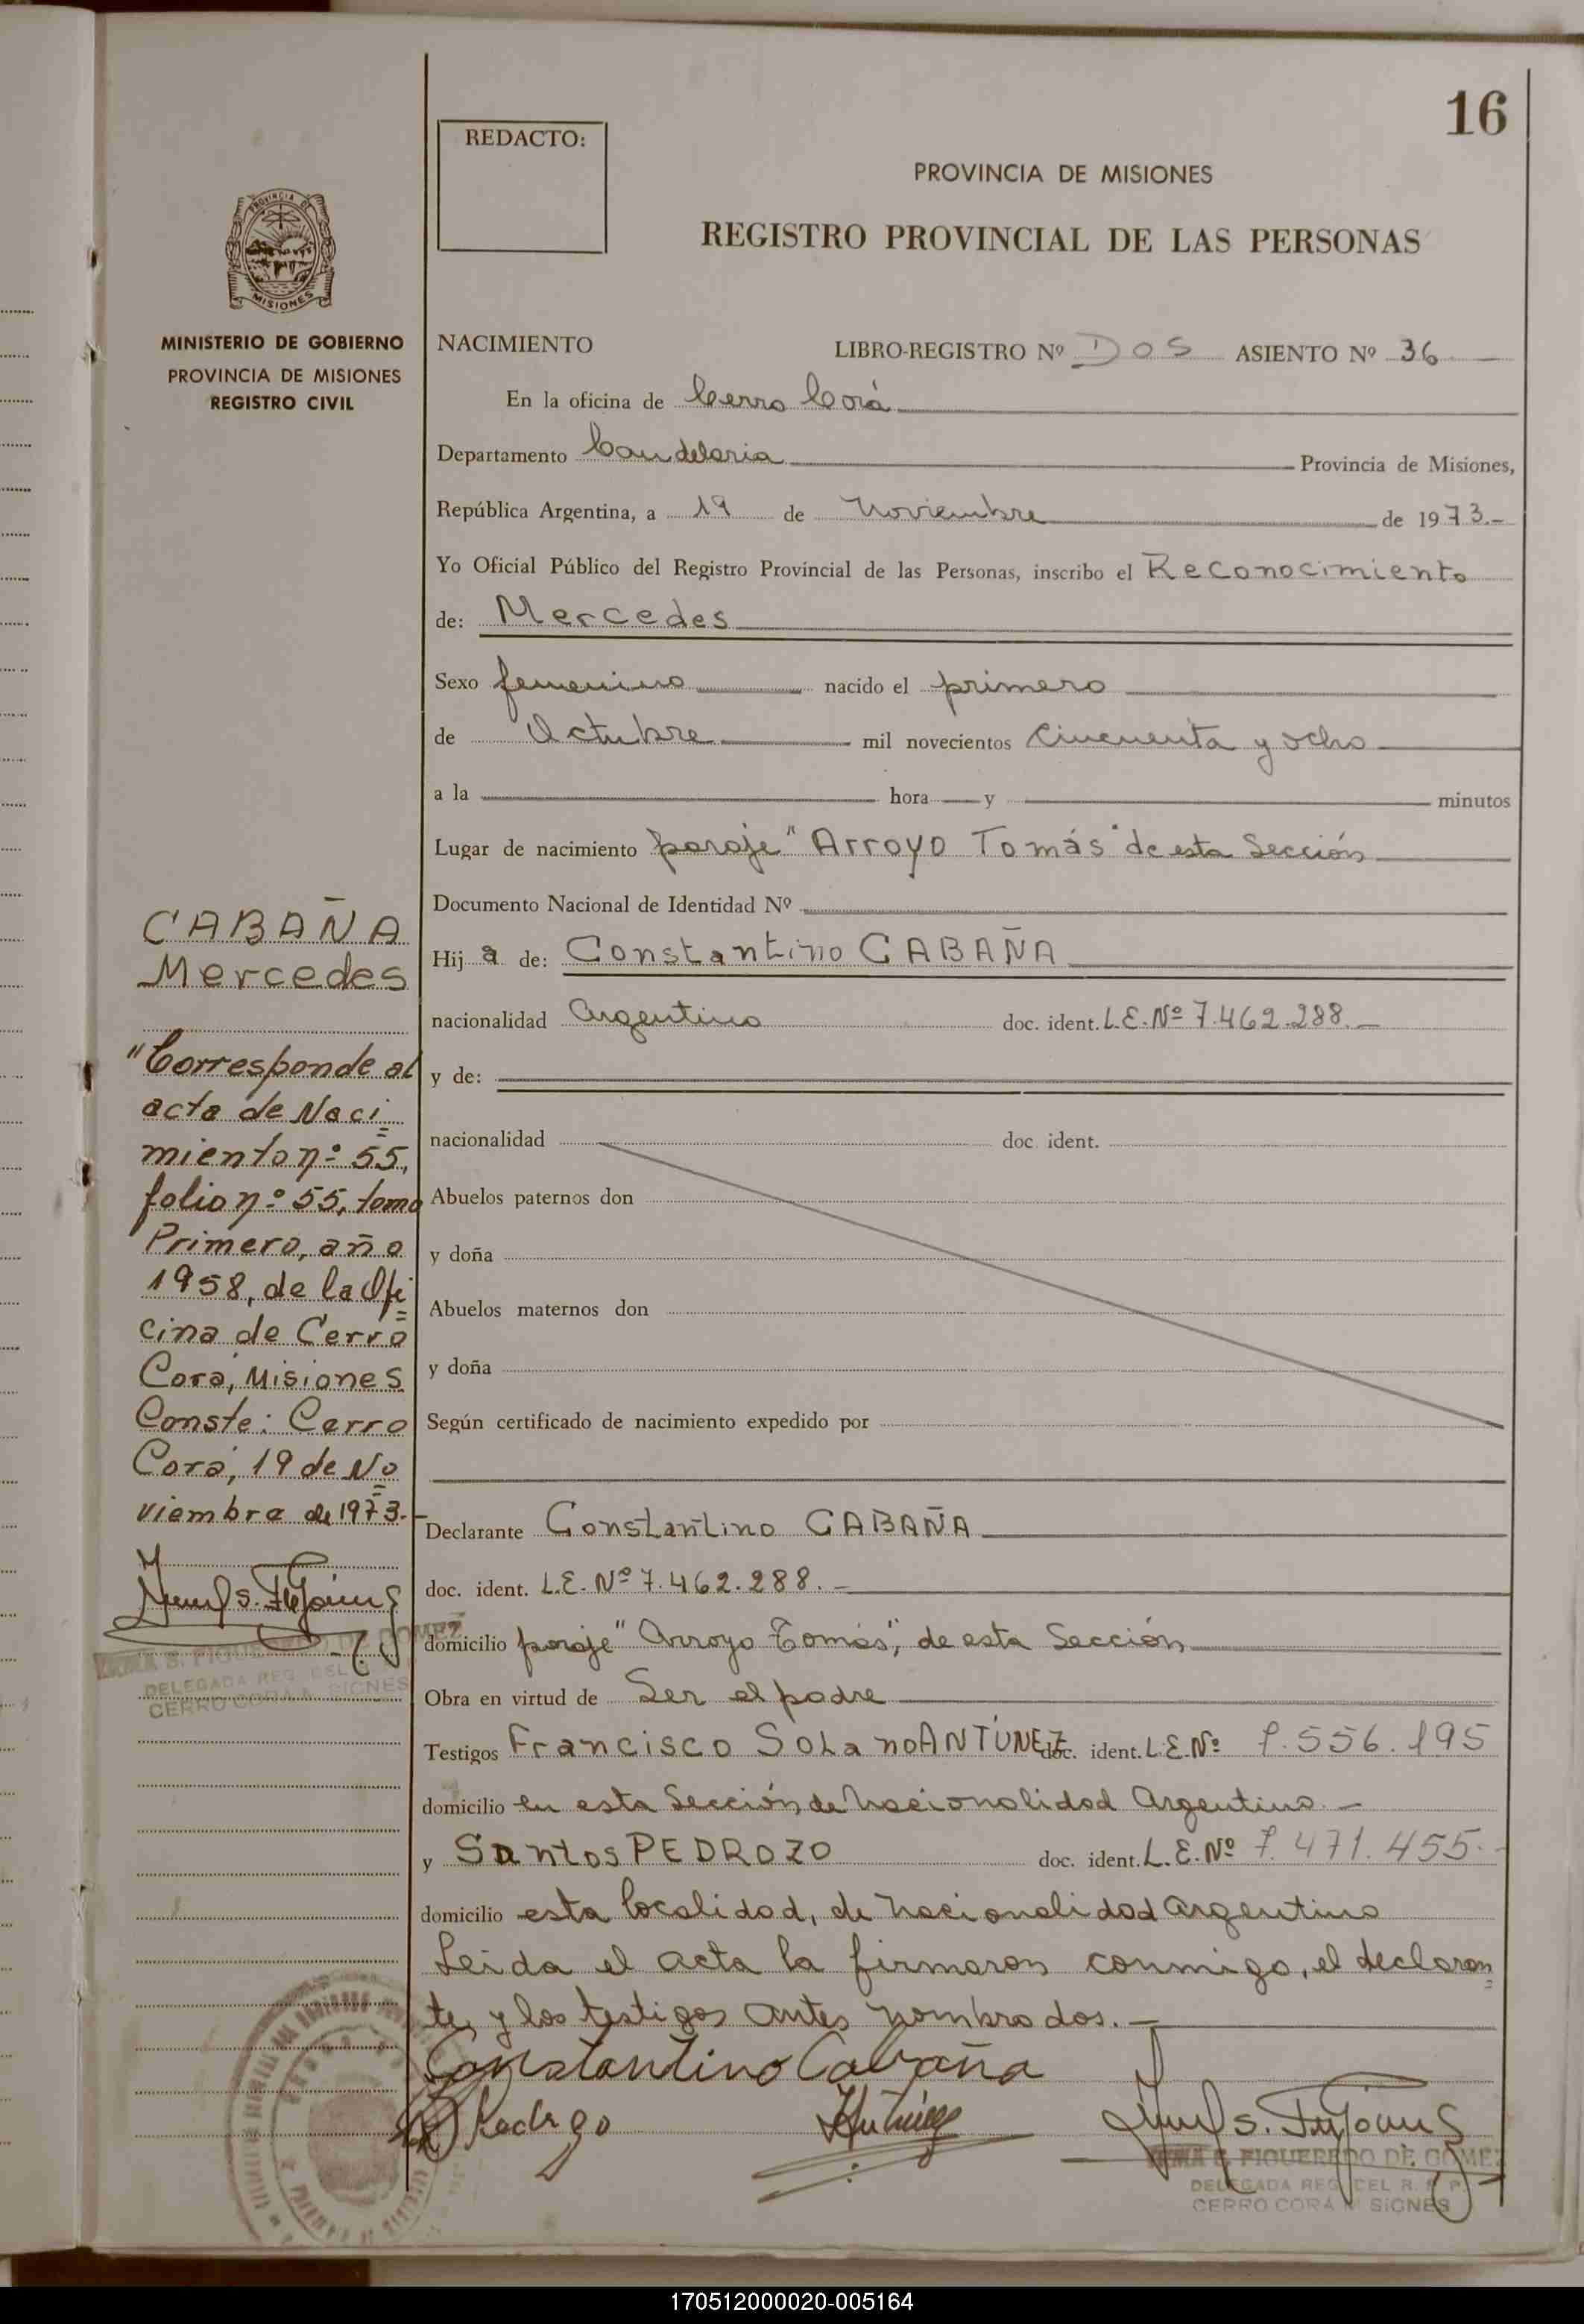 16
REDACTO:
PROVINCIA DE MISIONES
REGISTRO PROVINCIAL DE LAS PERSONAS
PROVINCIA DE
MISIONES
MINISTERIO DE GOBIERNO
PROVINCIA DE MISIONES
REGISTRO CIVIL
NACIMIENTO LIBRO-REGISTRO Nº Dos ASIENTO Nº 36
En la oficina de Cerro Corá
Departamento Candelaria Provincia de Misiones,
República Argentina, a 19 de Noviembre de 1973.-
Yo Oficial Público del Registro Provincial de las Personas, inscribo el Reconocimiento
de: Mercedes
Sexo femenino nacido el primero
de Octubre mil novecientos cincuenta y ocho
a la hora y minutos
Lugar de nacimiento paraje "Arroyo Tomás" de esta Sección
Documento Nacional de Identidad Nº
Hij a de: Constantino CABAÑA
nacionalidad Argentino doc. ident. L.E. Nº 7.462.288.-
y de:
nacionalidad doc. ident.
Abuelos paternos don
y doña
Abuelos maternos don
y doña
Según certificado de nacimiento expedido por
CABAÑA
Mercedes
"Corresponde al
acta de Naci=
miento nº 55,
folio nº 55, tomo
Primero, año
1958, de la Ofi=
cina de Cerro
Corá, Misiones
Conste: Cerro
Corá, 19 de No=
viembre de 1973.-
S. FIGUEREDO DE GOMEZ
DELEGADA REG. DEL
CERRO CORA
Declarante Constantino CABAÑA
doc. ident. L.E. Nº 7.462.288.-
domicilio paraje "Arroyo Tomás", de esta Sección
Obra en virtud de Ser el padre
Testigos Francisco SOLano ANTÚNEZ doc. ident. L.E. Nº 7.556.195
domicilio en esta Sección de Nacionalidad Argentino.-
y Santos PEDROZO doc. ident. L.E. Nº 7.471.455.-
domicilio esta localidad, de nacionalidad argentino
Leída el acta la firmaron conmigo, el declaran=
te, y los testigos antes nombrados.-
Constantino Cabaña
S. FIGUEREDO DE GOMEZ
DELEGADA REG. DEL R. P. P.
CERRO CORA
170512000020-005164